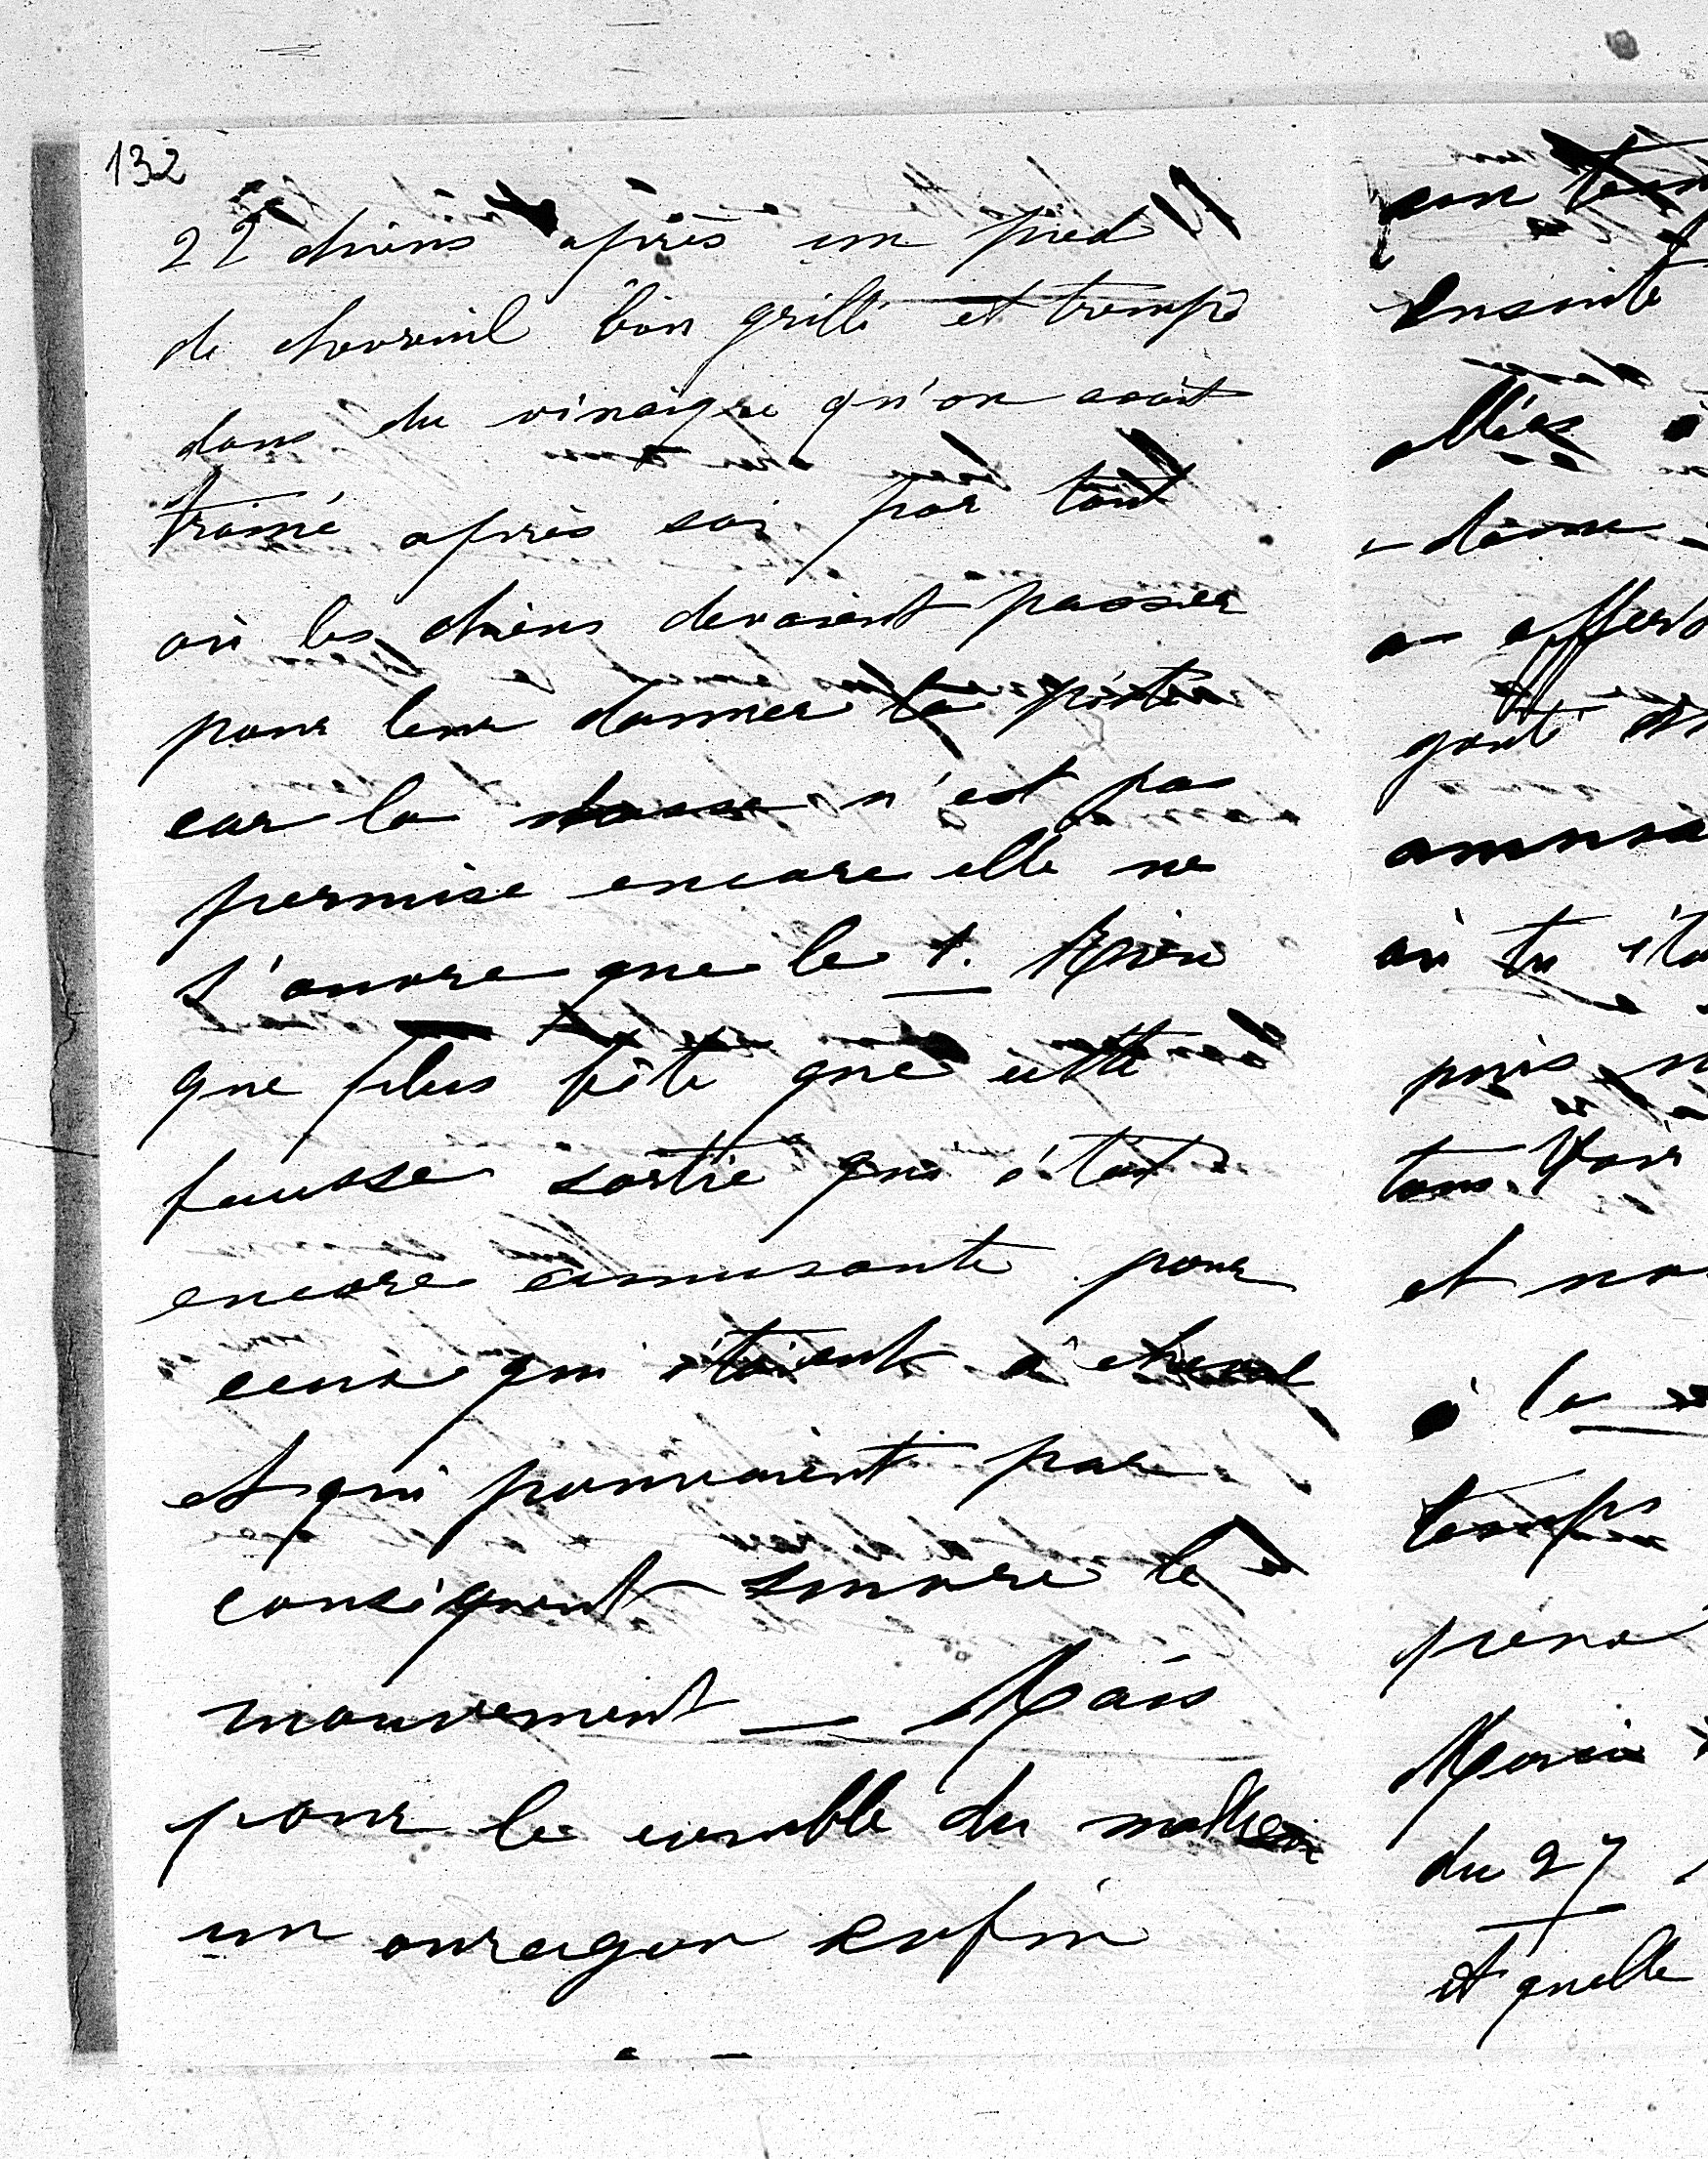 132
22 chiens après un pied
de chevreuil bien grillé et trempé
dans du vinaigre qu'on avait
trainé après soi par tout
où les chiens devaient passer
pour leur donner la piste
car la chasse n'est pas
permise encore elle ne
s'ouvre que le 1. Rien
que plus bête que cette
fausse sortie qui était
encore amusante pour
ceux qui étaient à cheval
et qui pouvaient par
conséquent suivre le
mouvement — Mais
pour le comble du malheur
un ouragan enfin
ensuite
allées à
a offert
gouté
où tu
puis
tous. Voir
et
à la
temps
du 27
et quelle